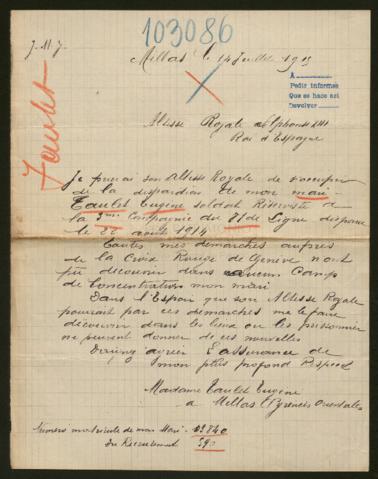 103086
J. M. J.
Millas le 14 Juillet 1915
A
Pedir informes
Que se hace así
Devolver
Taulet
Altesse Royale Alphonse XIII
Roi d'Espagne
Je prierai son Altesse Royale de
de la disparition de mon mari
Taulet Eugene soldat Réserviste à
la 9me Compagnie du 81 de Ligne disparu
le 20 août 1914
Toutes mes démarches auprès
de la Croix Rouge de Genève n'ont
pu découvrir dans aucun Camps
de Concentration mon mari
Dans l'Espoir que son Altesse Royale
pourrait par ces démarches me le faire
découvrir dans les lieux ou les prisonniers
ne peuvent donner de ces nouvelles
Daignez agréer l'assurance de
mon plus profond Respect
Madame Taulet Eugene
à Millas Pyrénées Orientales
Numero matricule de mon Mari
du Recrutement 590